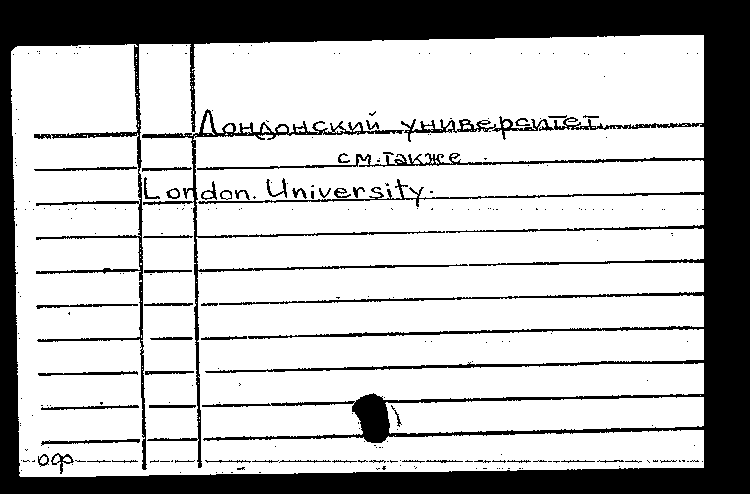 Лондонский университет
см. также
London. University.
оф